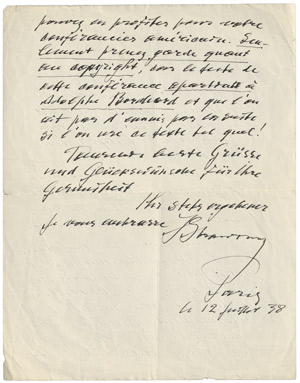 pouvez en profiter pour votre
conférence américaine. Seu-
lement prenez garde quant
au copyright, tout le texte de
cette conférence appartient à
Adolphe Borchard et que l'on
ait pas d'ennuis par la suite
si l'on use ce texte tel quel!
Tausend beste Grüsse
und Glückwünsche für Ihre
Gesundheit
Ihr stets ergebener
Je vous embrasse
Paris
le 12 Juillet 38